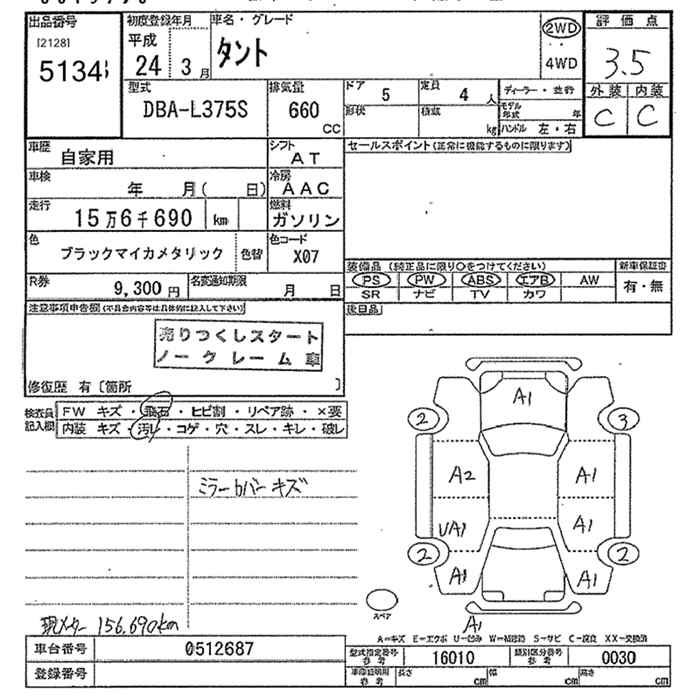 出品番号
[2128]
5134
初度登録年月
平成
24 3 月
車名・グレード
タント
2WD
4WD
評価点
3.5
外装 内装
C C
型式
DBA-L375S
排気量
660
CC
ドア 5
形状
定員 4 人
積載
kg
ディーラー・並行
モデル年式 年
ハンドル 左・右
車歴
自家用
シフト
AT
セールスポイント(正常に機能するものに限ります)
車検
年 月( 日)
冷房
AAC
走行
15万6千690 km
燃料
ガソリン
色
ブラックマイカメタリック
色替
色コード
X07
装備品 (純正品に限り○をつけてください)
新車保証書
PS PW ABS エアB AW
SR ナビ TV カワ
有・無
R券
9,300 円
名変通知期限
月 日
後日品
注意事項申告欄(不具合内容等は具体的に記入して下さい)
売りつくしスタート
ノークレーム車
修復歴 有〔箇所 〕
検査員
記入欄
FW キズ・飛石・ヒビ割・リペア跡・×要
内装 キズ・汚れ・コゲ・穴・スレ・キレ・破レ
ミラーカバーキズ
A1
2 3
A2 A1
UA1 A1
2 2
A1 A1
スペア
A1
現メーター 156,690km
A=キズ E=エクボ U=凹み W=補修跡 S=サビ C=腐食 XX=交換済
車台番号
0512687
型式指定番号
参考
16010
類別区分番号
参考
0030
登録番号
車庫証明用
参考
長さ cm 幅 cm 高さ cm